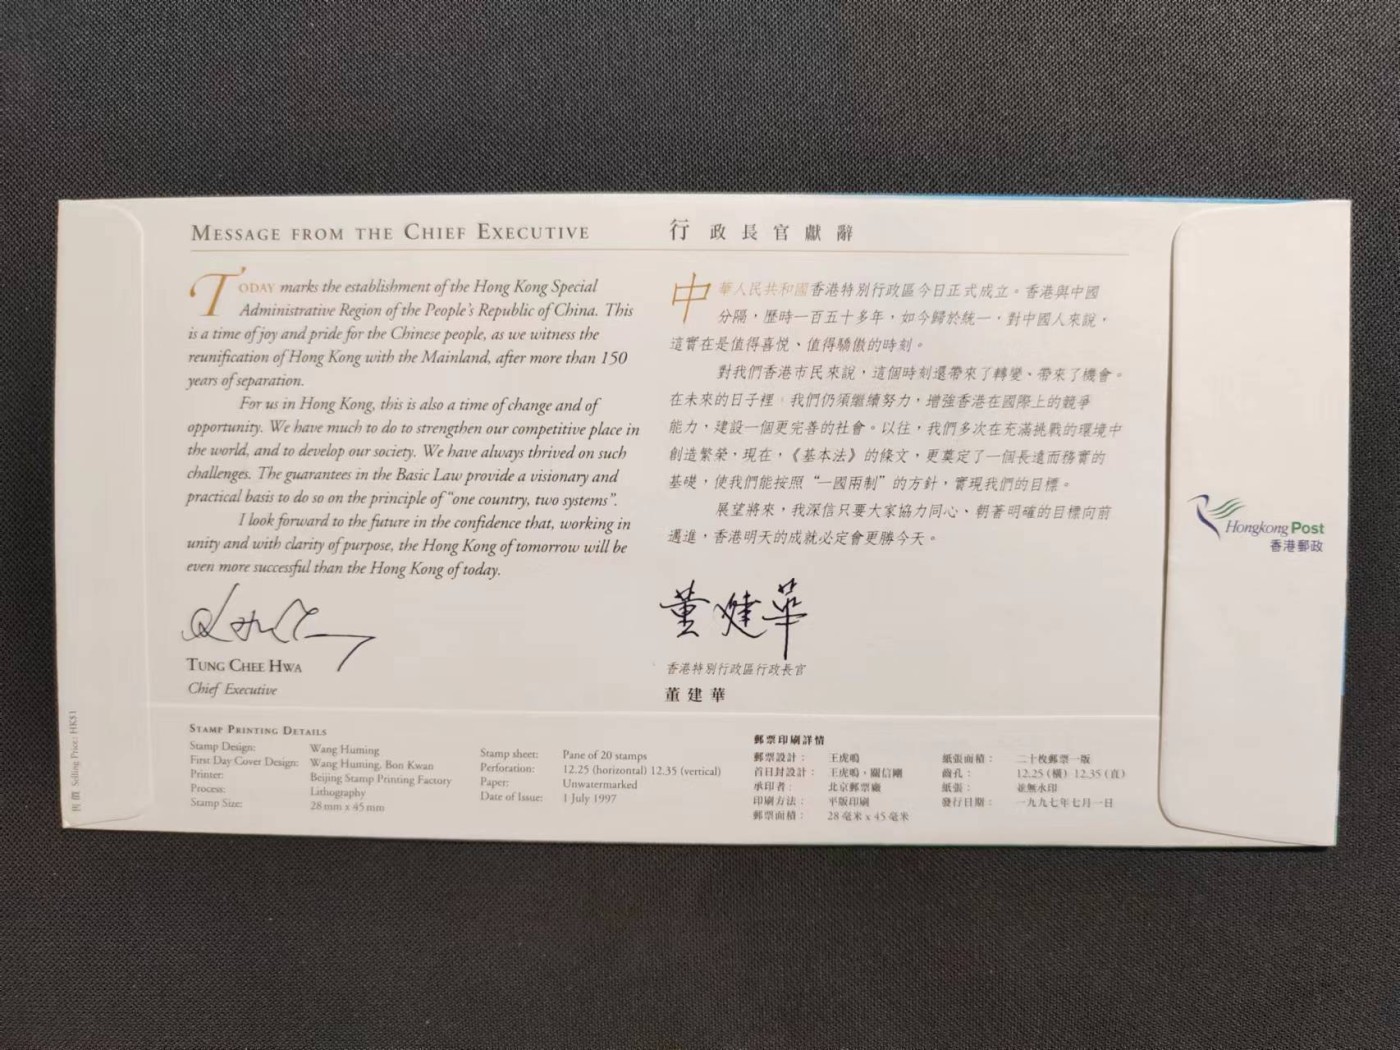 MESSAGE FROM THE CHIEF EXECUTIVE
TODAY marks the establishment of the Hong Kong Special
Administrative Region of the People's Republic of China. This
is a time of joy and pride for the Chinese people, as we witness the
reunification of Hong Kong with the Mainland, after more than 150
years of separation.
For us in Hong Kong, this is also a time of change and of
opportunity. We have much to do to strengthen our competitive place in
the world, and to develop our society. We have always thrived on such
challenges. The guarantees in the Basic Law provide a visionary and
practical basis to do so on the principle of "one country, two systems".
I look forward to the future in the confidence that, working in
unity and with clarity of purpose, the Hong Kong of tomorrow will be
even more successful than the Hong Kong of today.
TUNG CHEE HWA
Chief Executive
行政長官獻辭
中華人民共和國香港特別行政區今日正式成立。香港與中國
分隔，歷時一百五十多年，如今歸於統一，對中國人來說，
這實在是值得喜悅、值得驕傲的時刻。
對我們香港市民來說，這個時刻還帶來了轉變、帶來了機會。
在未來的日子裡，我們仍須繼續努力，增強香港在國際上的競爭
能力，建設一個更完善的社會。以往，我們多次在充滿挑戰的環境中
創造繁榮，現在，《基本法》的條文，更奠定了一個長遠而務實的
基礎，使我們能按照“一國兩制”的方針，實現我們的目標。
展望將來，我深信只要大家協力同心、朝著明確的目標向前
邁進，香港明天的成就必定會更勝今天。
董建華
香港特別行政區行政長官
董建華
Hongkong Post
香港郵政
售價 Selling Price: HK$1
STAMP PRINTING DETAILS
Stamp Design: Wang Huming
First Day Cover Design: Wang Huming, Bon Kwan
Printer: Beijing Stamp Printing Factory
Process: Lithography
Stamp Size: 28 mm x 45 mm
Stamp sheet: Pane of 20 stamps
Perforation: 12.25 (horizontal) 12.35 (vertical)
Paper: Unwatermarked
Date of Issue: 1 July 1997
郵票印刷詳情
郵票設計： 王虎鳴
首日封設計： 王虎鳴，關信剛
承印者： 北京郵票廠
印刷方法： 平版印刷
郵票面積： 28 毫米 x 45 毫米
紙張面積： 二十枚郵票一版
齒孔： 12.25 (橫) 12.35 (直)
紙張： 並無水印
發行日期： 一九九七年七月一日